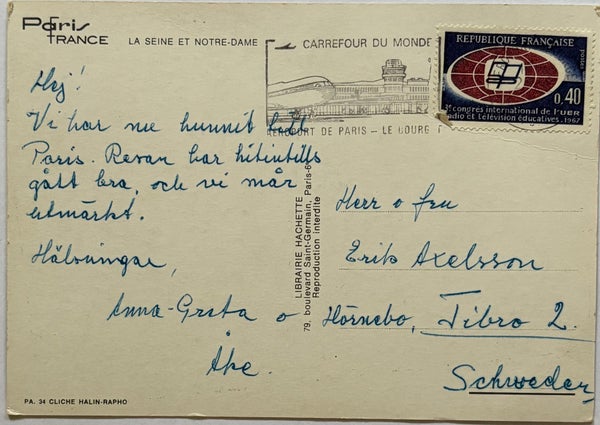 Paris
FRANCE
LA SEINE ET NOTRE-DAME
CARREFOUR DU MONDE
AÉROPORT DE PARIS - LE BOURGET
RÉPUBLIQUE FRANÇAISE
postes
0,40
3e congrès international de l'UER
radio et télévision éducatives. 1967
Hej!
Vi har nu hunnit till
Paris. Resan har hitintills
gått bra, och vi mår
utmärkt.
Hälsningar,
Anna-Greta o
Åke.
LIBRAIRIE HACHETTE
79, boulevard Saint-Germain, Paris-6e
Reproduction interdite
Herr o fru
Erik Axelsson
Hörnebo, Tibro 2.
Schweden
PA. 34 CLICHE HALIN-RAPHO